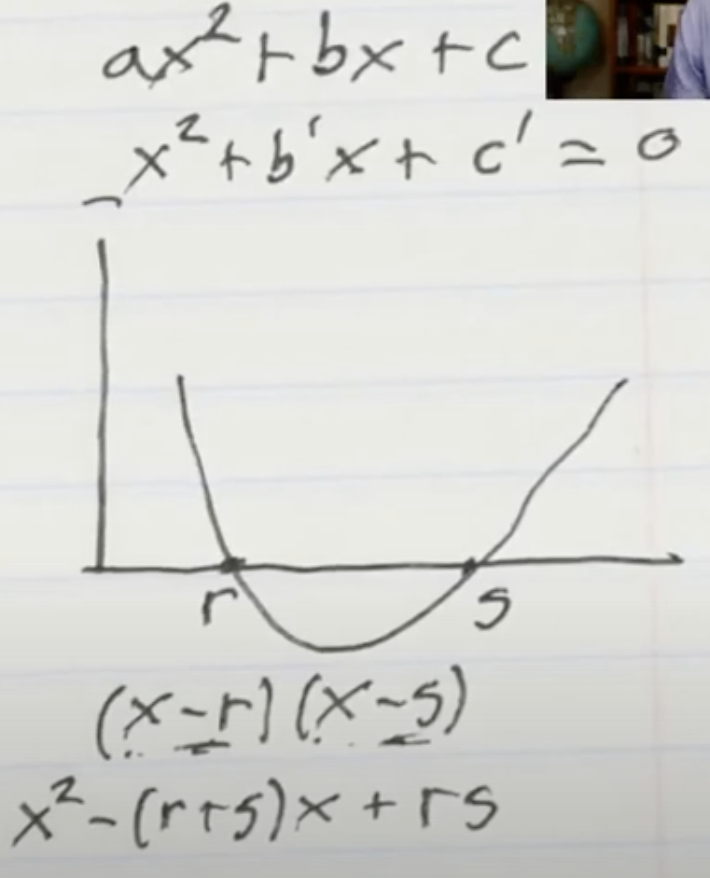 ax² + bx + c
x² + b'x + c' = 0
r s
(x-r)(x-s)
x² - (r+s)x + rs